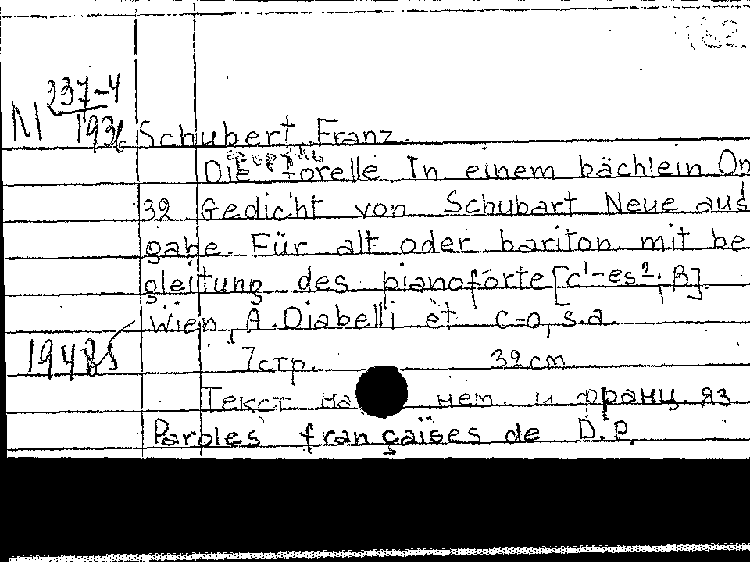 162
237-4
М 1936 Schubert, Franz.
Die forelle In einem bächlein On
32 Gedicht von Schubart Neue aus
gabe. Für alt oder bariton mit be
gleitung des pianoforte [c¹-es²; B].
Wien, A. Diabelli et C-o, s.a.
19485 7стр. 32cm
Текст на нем. и франц. яз
Paroles françaises de D.P.